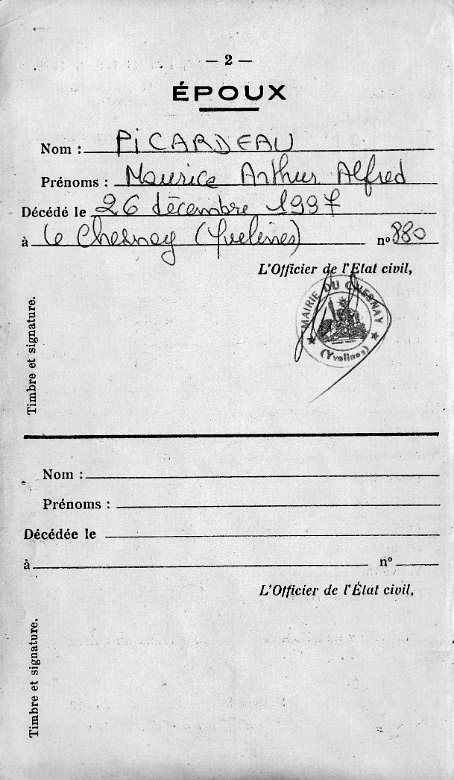 — 2 —
ÉPOUX
Nom : PiCARDEAU
Prénoms : Maurice Arthur Alfred
Décédé le 26 décembre 1997
à Le Chesnay (Yvelines) n° 880
L'Officier de l'Etat civil,
MAIRIE DU CHESNAY
(Yvelines)
Timbre et signature.
Nom :
Prénoms :
Décédée le
à n°
L'Officier de l'État civil,
Timbre et signature.